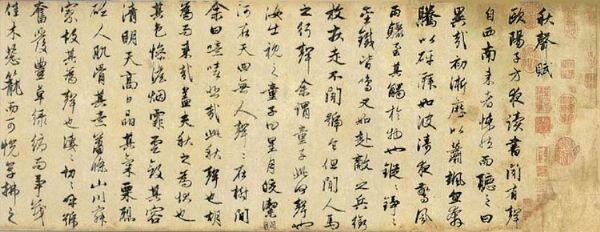 秋聲賦
歐陽子方夜讀書聞有聲
自西南來者悚然而聽之曰
異哉初淅瀝以蕭颯忽奔
騰以砰湃如波濤夜驚風
雨驟至其觸於物也鏦〻錚〻
金鐵皆鳴又如赴敵之兵銜
枚疾走不聞號令但聞人馬
之行聲余謂童子此何聲也
汝出視之童子曰星月皎潔
河在天四無人聲〻在樹間
余曰噫嘻悲哉此秋聲也胡
為而來哉蓋夫秋之為狀也
其色慘淡烟霏雲斂其容
清明天高日晶其氣栗冽
砭人肌骨其意蕭條山川寂
寥故其為聲也淒〻切〻呼號
奮發豐草綠縟而爭茂
佳木葱蘢而可悅草拂之